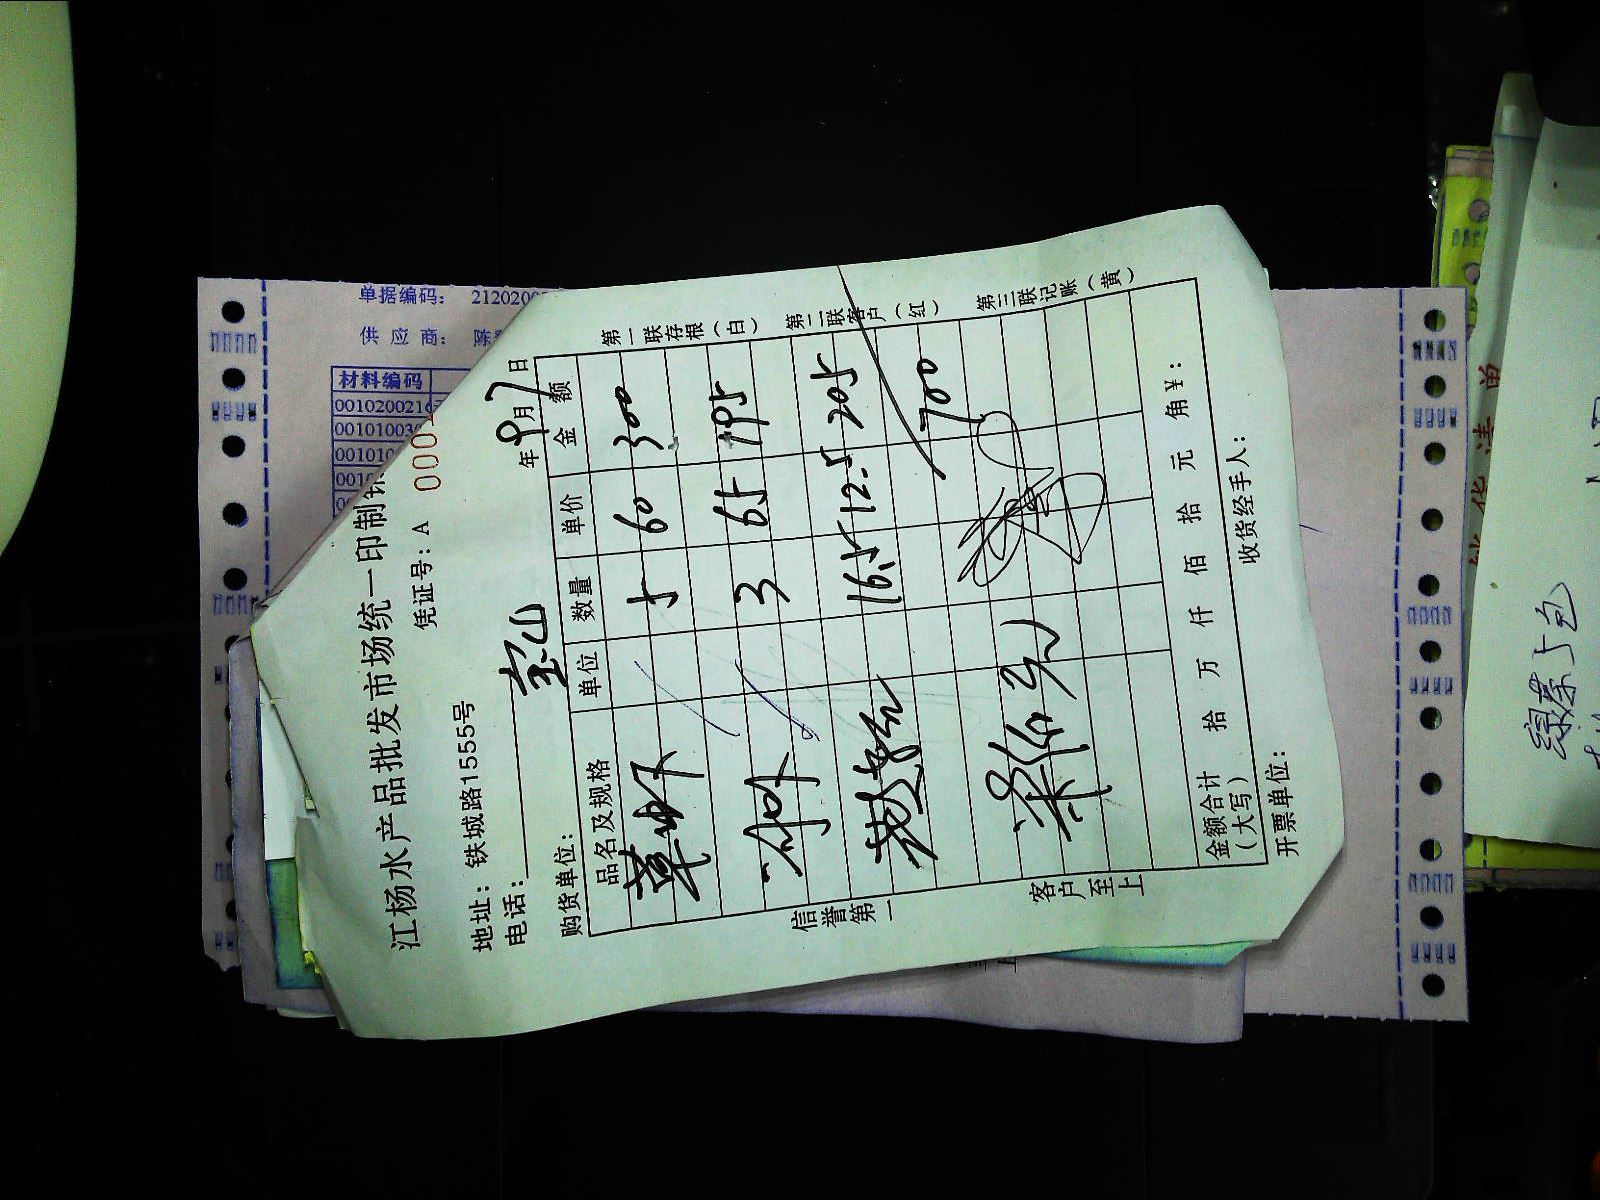 江杨水产品批发市场统一印制
凭证号：A 000
地址：铁城路1555号
电话：
购货单位： 宝山 年 9月7日
品名及规格 单位 数量 单价 金额
草虾 5 60 300
3 65 195
16.5 12.5 205
700
金额合计（大写） 拾 万 仟 佰 拾 元 角 ¥：
开票单位： 收货经手人：
信誉第一
客户至上
第一联存根（白）
第二联客户（红）
第三联记账（黄）
单据编码： 212020
供应商： 陈
材料编码
0010200216
00101003
00101
绿茶5包